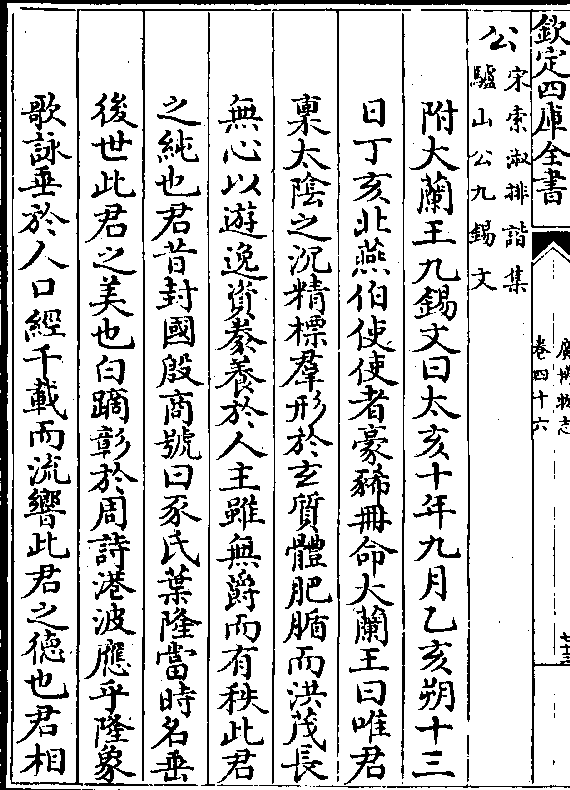 欽定四庫全書
廣博物志
卷四十六
公
宋袁淑排諧集
驢山公九錫文
附大蘭王九錫文曰太亥十年九月乙亥朔十三
日丁亥北燕伯使使者豪豨冊命大蘭王曰唯君
稟太陰之沉精標羣形於玄質體肥腯而洪茂長
無心以遊逸資豢養於人主雖無爵而有秩此君
之純也君昔封國殷商號曰豕氏葉隆當時名垂
後世此君之美也白蹢彰於周詩港波應乎隆象
歌詠垂於人口經千載而流響此君之德也君相